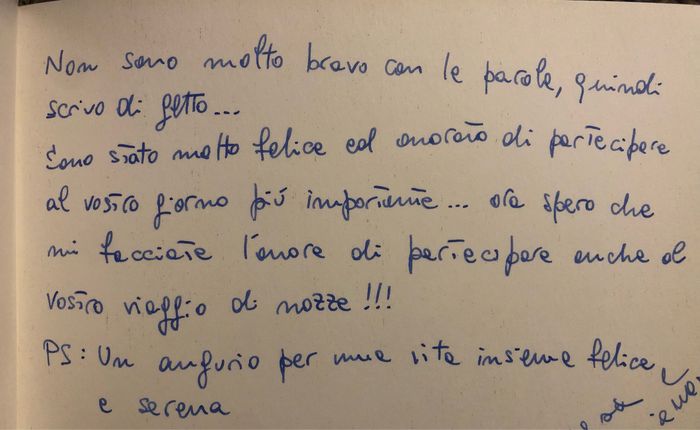 Non sono molto bravo con le parole, quindi
scrivo di getto...
Sono stato molto felice ed onorato di partecipare
al vostro giorno più importante... ora spero che
mi facciate l'onore di partecipare anche al
vostro viaggio di nozze!!!
PS: Un augurio per una vita insieme felice
e serena